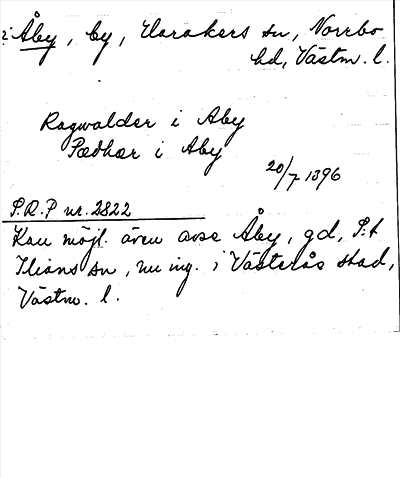 Åby, by, Harakers sn, Norrbo
hd, Västm. l.
Ragwalder i Aby
Pædhar i Aby
20/7 1396
S.R.P nr. 2822
Kan möjl. även avse Åby, gd, S:t
Ilians sn, nu ing. i Västerås stad,
Västm. l.